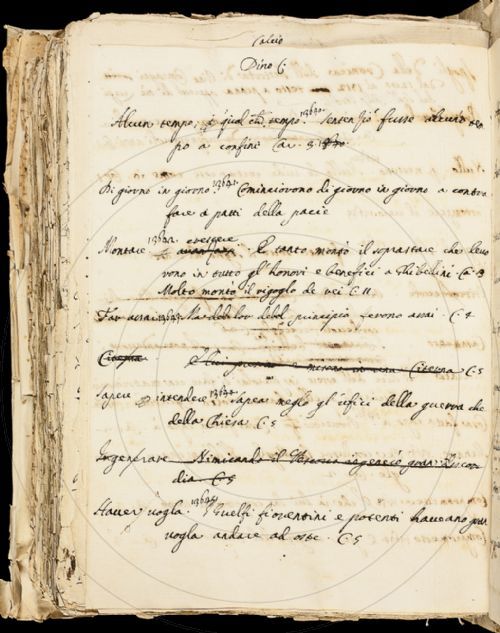 Dino C.
Alcun tempo, p qual che tempo. 1363. fusse alcun tem
po a confini Car. 3.
Di giorno in giorno. Cominciorono di giorno in giorno a contra
fare a patti della pacie
Montare crescere E tanto montò il soprastare che leva
rono in tutto gl'honori e benefici a Ghibellini C. 3
Molto montò il rigoglio de rei C. 11
Far assai Ma deb lor debol principio ferono assai C. 4
Citerna C. 5
Sapere p intendere Sapea meglo gl'ufici della guerra che
della Chiesa C. 5
Ingenerare Nimicando il Vescovo gran Discor
dia C. 5
Haver vogla. I Guelfi fiorentini e potenti haveano gran
vogla andare ad oste C. 5